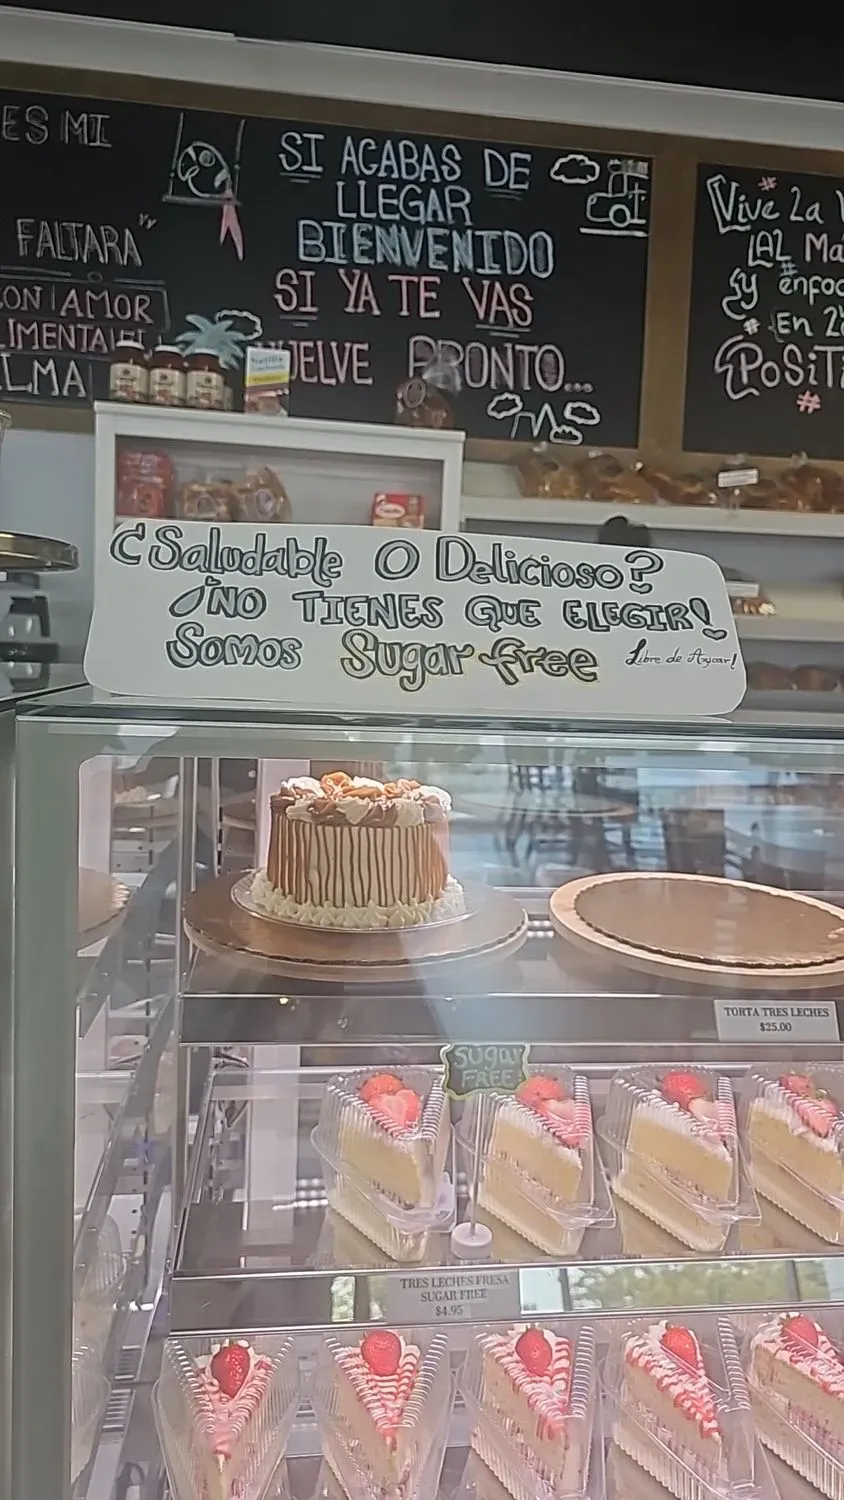 ES MI
FALTARA"
CON AMOR
ALMA
SI ACABAS DE
LLEGAR
BIENVENIDO
SI YA TE VAS
VUELVE PRONTO...
Vive La
AL Ma
y enfoc
En
POSITI
¿Saludable O Delicioso?
¡NO TIENES QUE ELEGIR!
SOMOS Sugar free Libre de Azucar!
TORTA TRES LECHES
$25.00
SUGAR
FREE
TRES LECHES FRESA
SUGAR FREE
$4.95